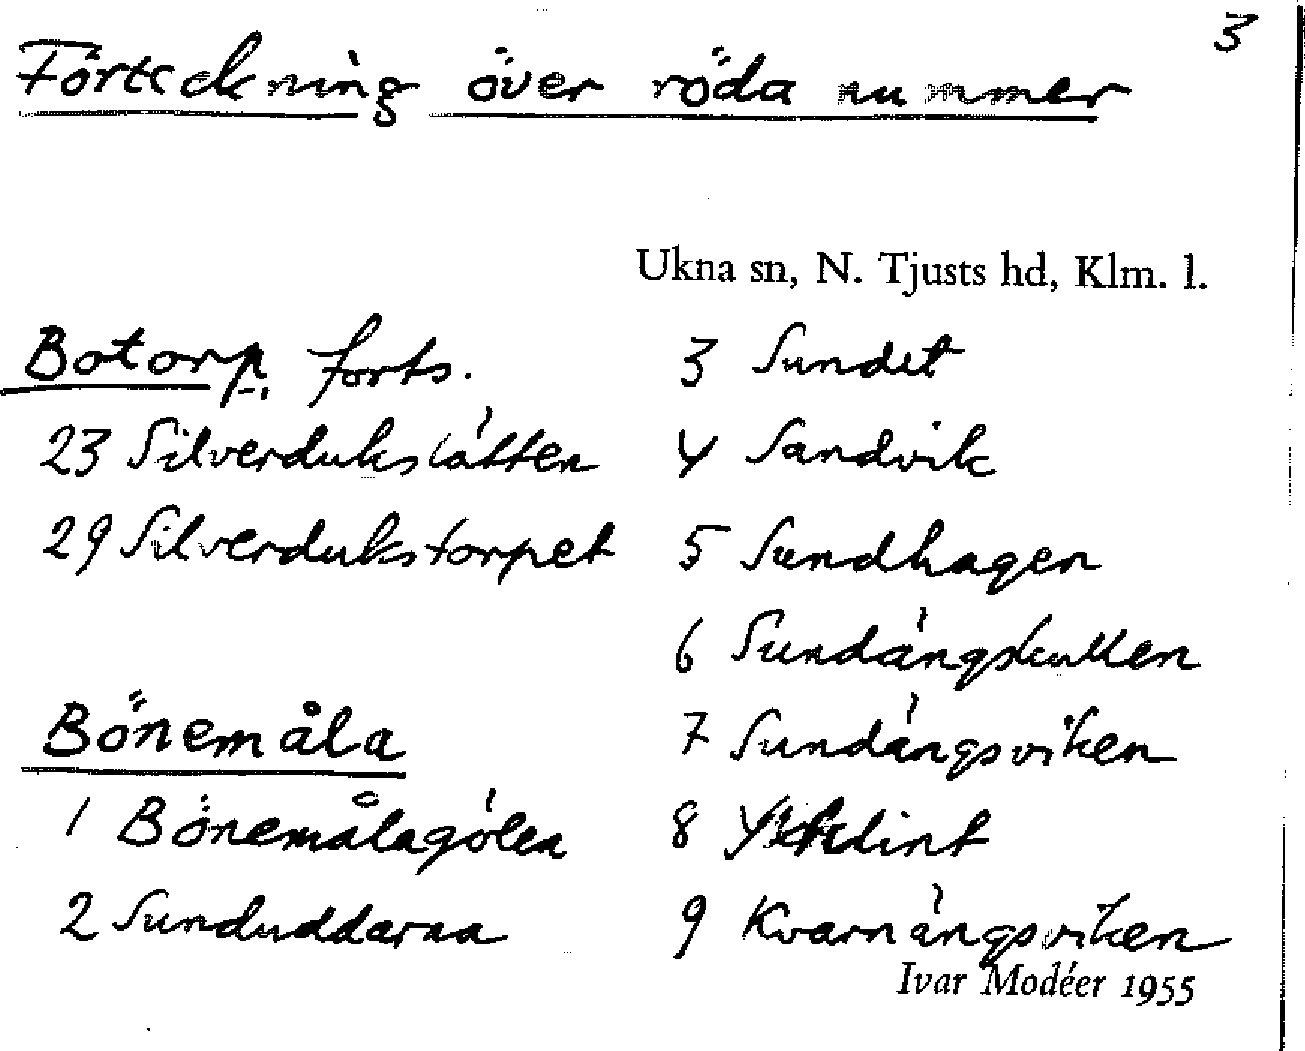 3
Förteckning över röda nummer
Ukna sn, N. Tjusts hd, Klm. l.
Botorp, forts.
23 Silverdukslåtten
29 Silverdukstorpet
Bönemåla
1 Bönemålagölen
2 Sunduddarna
3 Sundet
4 Sandvik
5 Sundhagen
6 Sundängskullen
7 Sundängsviken
8
9 Kvarnängsviken
Ivar Modéer 1955